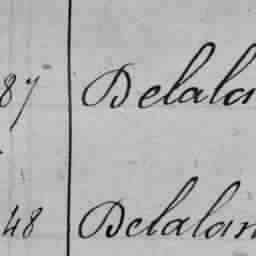 87 Delala
48 Delalan